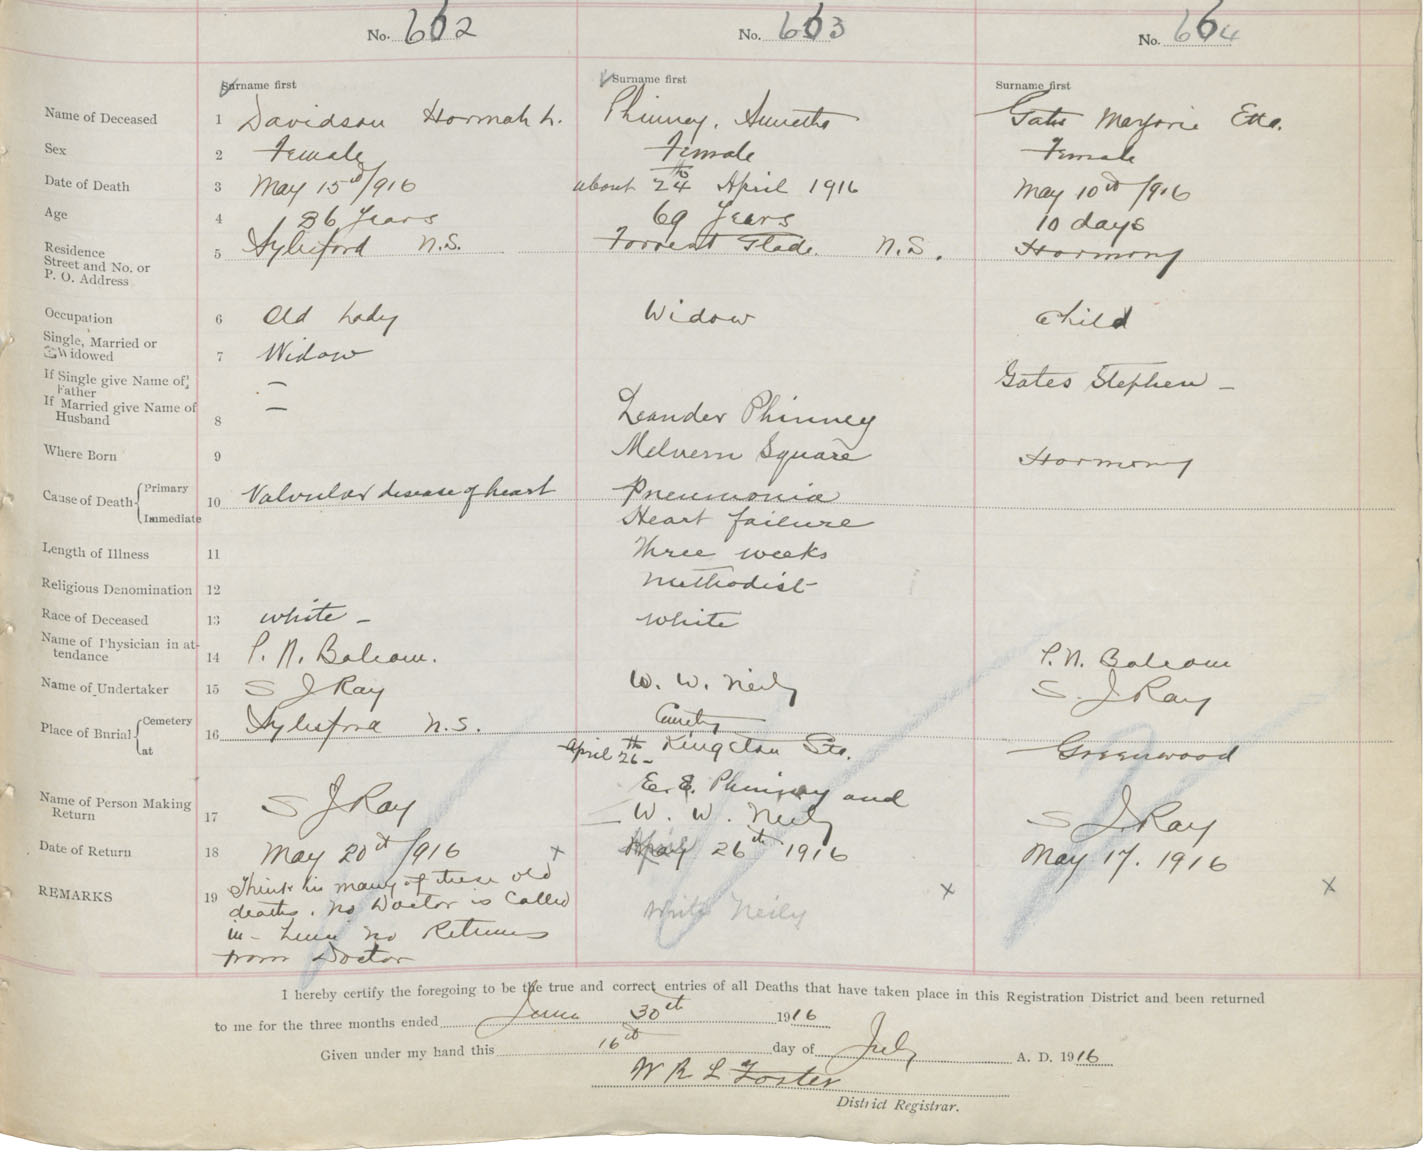 No. 662 No. 663 No. 664
Surname first Surname first Surname first
Name of Deceased 1 Davidson Hormah L. Phinney, Annetha Gates Marjorie Etta.
Sex 2 Female Female Female
Date of Death 3 May 15th/916 about 24th April 1916 May 10th/916
Age 4 86 Years 69 Years 10 days
Residence
Street and No. or
P. O. Address
5 Aylesford N.S. Torrent Glade. N.S. Harmony
Occupation 6 Old Lady Widow Child
Single, Married or
Widowed
7 Widow
If Single give Name of
Father
— Gates Stephen —
If Married give Name of
Husband
8 — Leander Phinney
Where Born 9 Melvern Square Harmony
Cause of Death Primary 10 Valvular disease of heart Pneumonia
Immediate Heart failure
Length of Illness 11 Three weeks
Religious Denomination 12 Methodist
Race of Deceased 13 white — white
Name of Physician in at-
tendance
14 P. N. Balcom. P. N. Balcom
Name of Undertaker 15 S J Ray W. W. Neily S. J Ray
Place of Burial Cemetery at 16 Aylesford N.S. Cemetry Greenwood
April 26th — Kingston Sta.
E. E. Phinney and
Name of Person Making
Return
17 S J Ray W. W. Neily S J Ray
Date of Return 18 May 20th/916 26th 1916 May 17. 1916
REMARKS 19 Think in many of these old
deaths. no Doctor is Called
in — hence no Returns
from Doctor
write Neily
I hereby certify the foregoing to be the true and correct entries of all Deaths that have taken place in this Registration District and been returned
to me for the three months ended June 30th 1916
Given under my hand this 16th day of July A. D. 1916
W R L Foster
District Registrar.